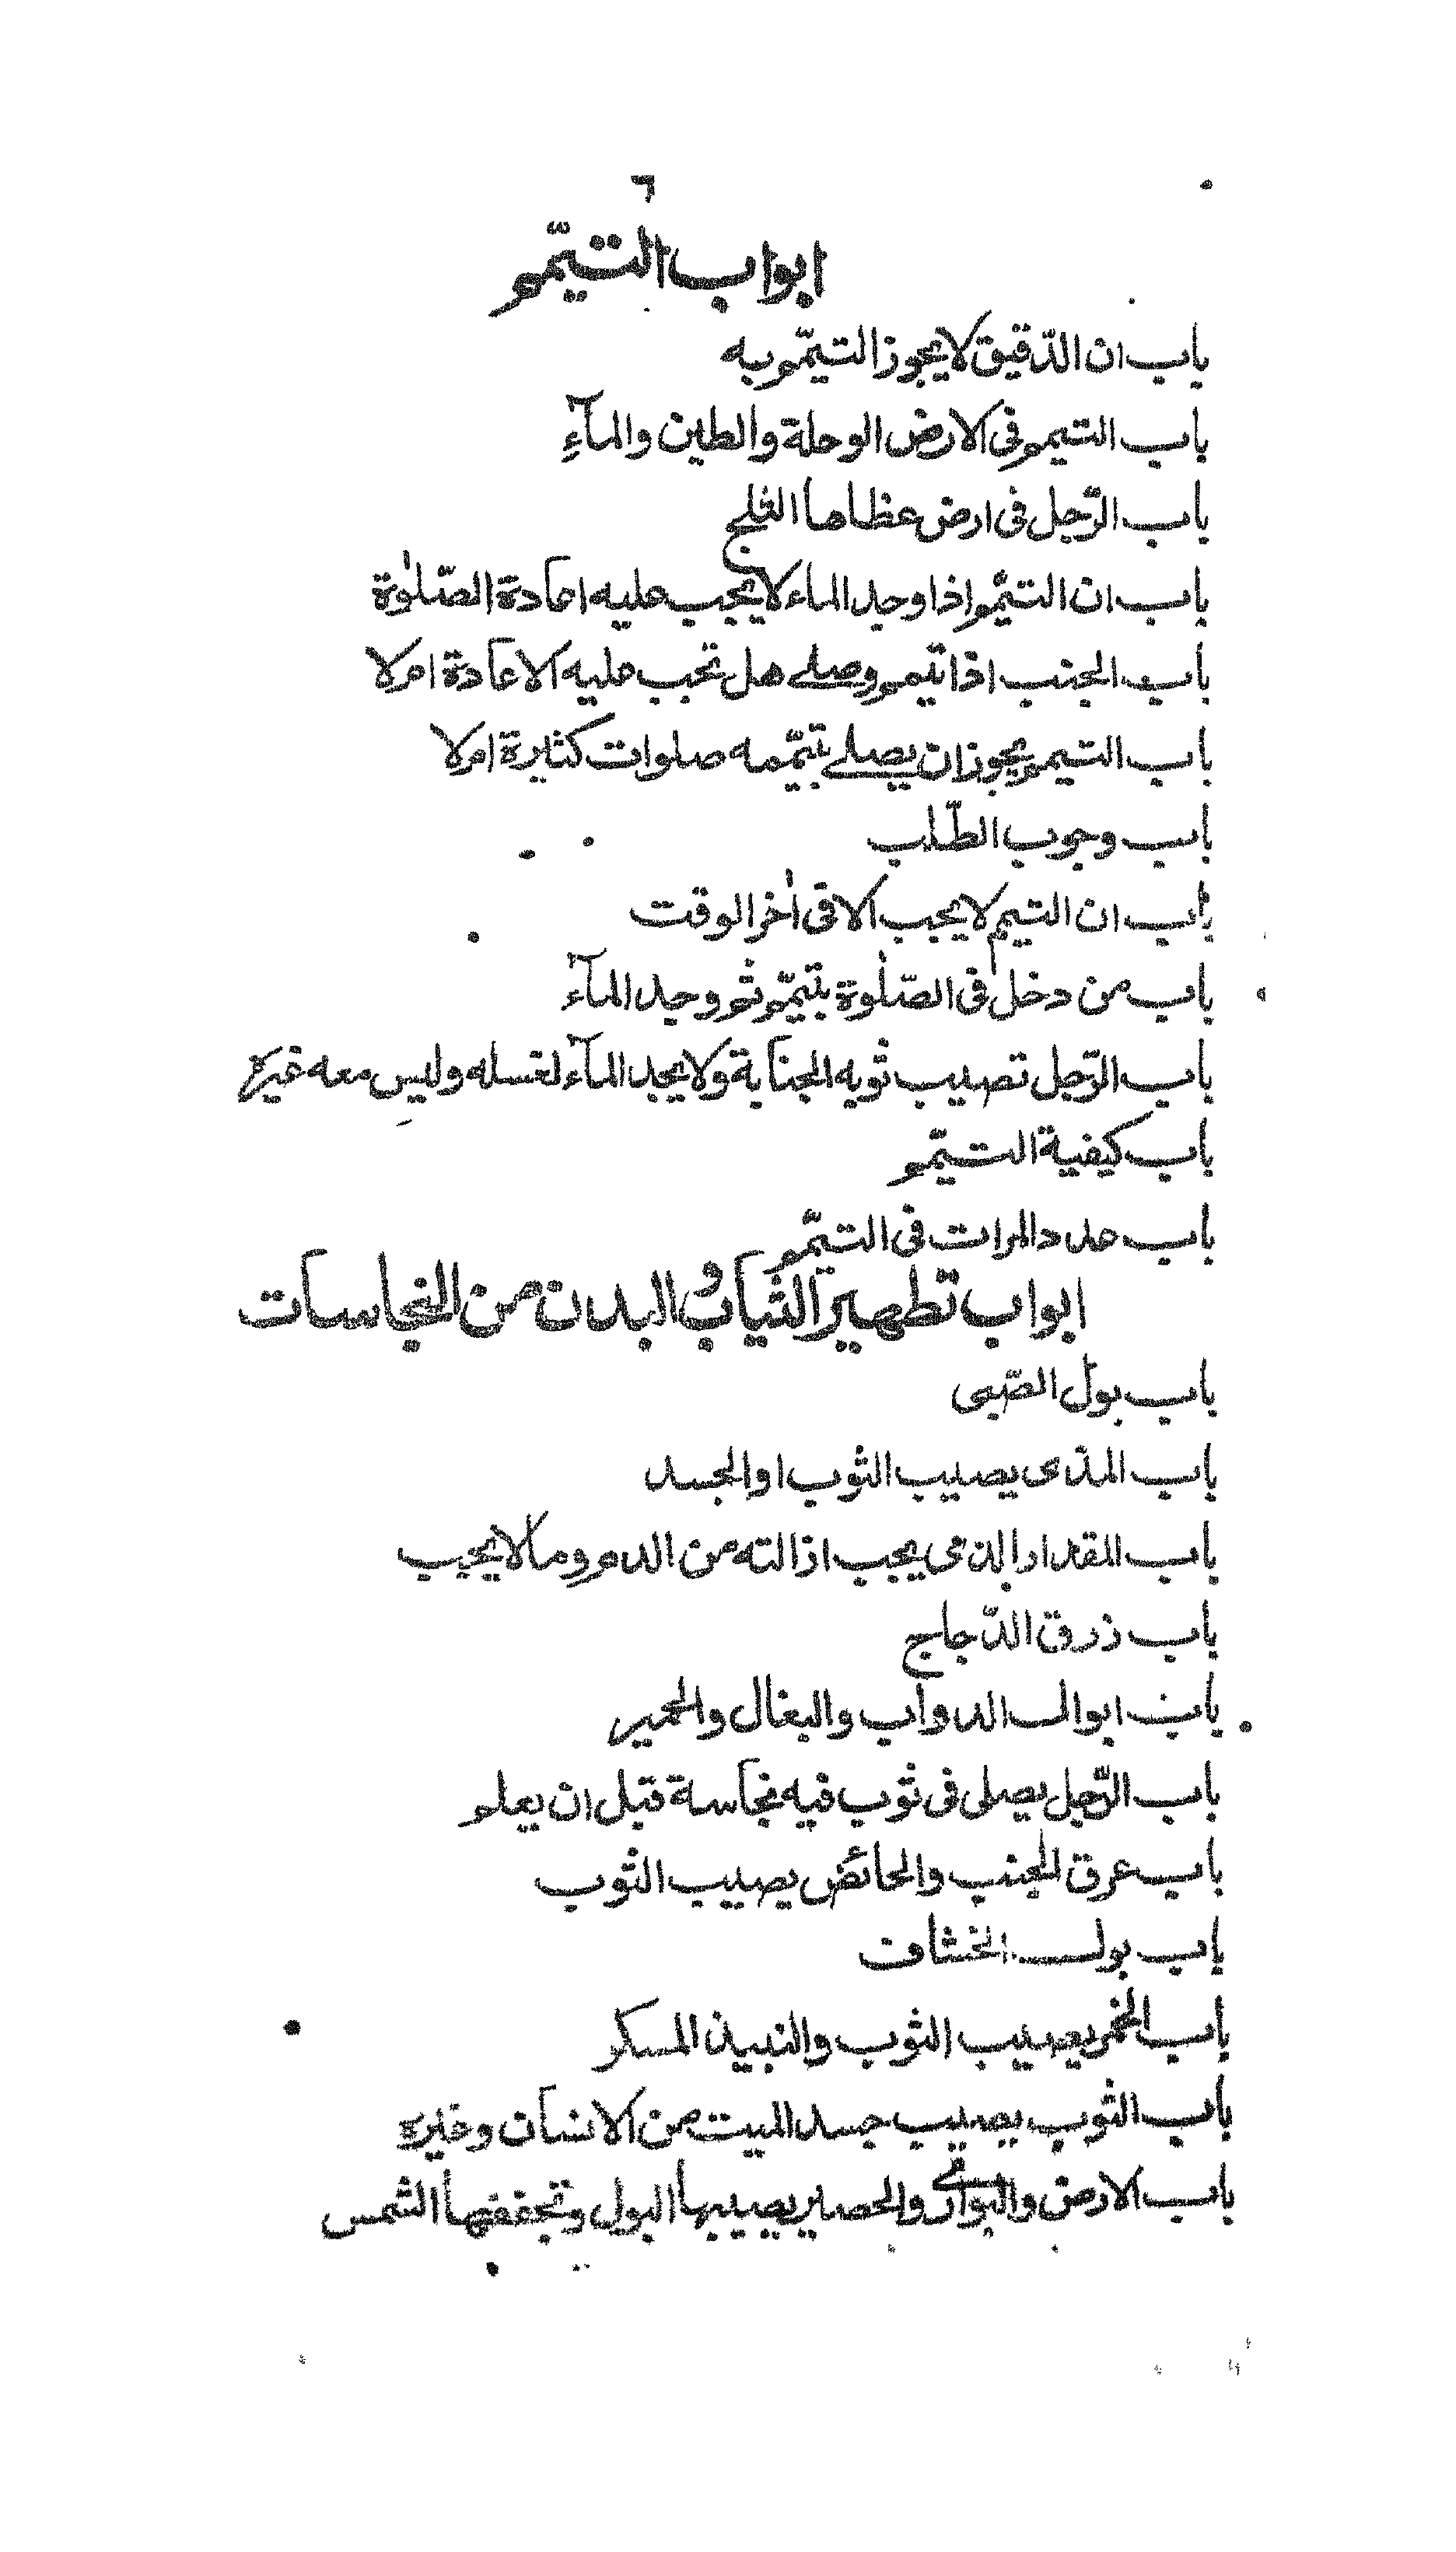 ٦
ابواب التيمّم
باب ان الدّقيق لا يجوز التيمّم به
باب التيمم فى الارض الوحلة والطين والمآءِ
باب الرّجل فى ارض غطاها الثلج
باب ان التيمّم اذا وجد الماء لا يجب عليه اعادة الصّلوٰة
باب الجنب اذا تيمم وصلے هل تجب عليه الاعادة ام لا
باب التيمم يجوز ان يصلے بتيمّمه صلوات كثيرة ام لا
باب وجوب الطّلب
باب ان التيمم لا يجب الا فى اٰخر الوقت
باب من دخل فى الصّلوٰة بتيمّم ثم وجد المآء
باب الرّجل تصيب ثوبه الجنابة ولا يجد المآء لغسله وليس معه غيره
باب كيفية التيمّم
باب عدد المرات فى التيمّم
ابواب تطهير الثياب و البدن من النجاسات
باب بول الصّبى
باب المذى يصيب الثوب او الجسد
باب المقدار الذى يجب ازالته من الدم وما لا يجب
باب ذرق الدّجاج
باب ابوال الدواب والبغال والحمير
باب الرّجل يصلى فى ثوب فيه نجاسة قبل ان يعلم
باب عرق الجنب والحائض يصيب الثوب
باب بول الخشاف
باب الخمر يصيب الثوب والنبيذ المسكر
باب الثوب يصيب جسد الميت من الانسان وغيره
باب الارض والبوارى والحصير يصيبها البول وتجففها الشمس